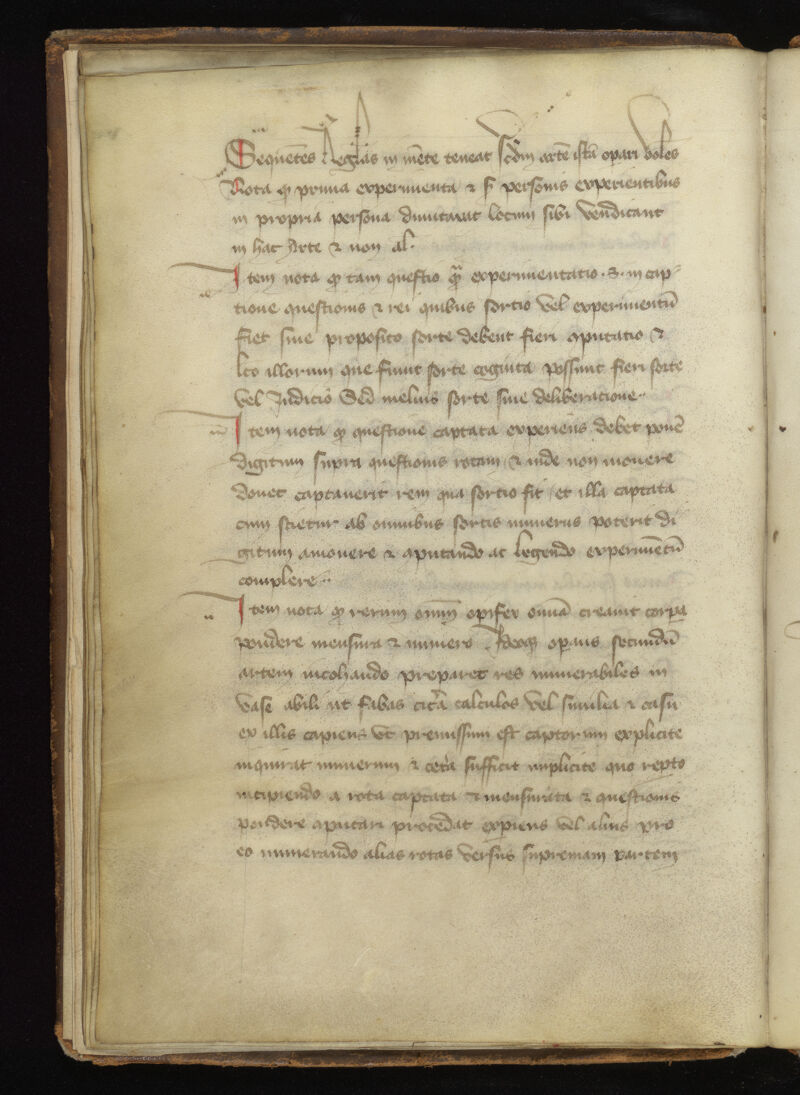 Sequētes Reglas in mēte teneat scdm artē istā opari volēs
Nota qꝫ prima experimenta ⁊ personis experientibus
in propria persona dumtaxat locum sibi vendicant
in hac Arte ⁊ non al.
Item nota qꝫ tam questio qͣ experimentatio .s. in cap
tione questionis ⁊ rei quibus sortio vel experimentū
fiet sine proposito sorte debent fieri 9putatio ⁊
lco illorum que fiunt sorte cognita possunt fieri sorte
vel Iudicio Sed melius sorte sine deliberacione
Item nota qꝫ questione captata experiens debet ponē
digitum supra questionis rotam ⁊ inde non mouere
donec captauerit rem qua sortio fit et illa captata
cum scietur ab omnibus sortis numerus poterit di
gitum amouere ⁊ 9putando ac legendo experimētū
complere
Item nota qꝫ rerum omīm opifex omīa creauit corpa
pondere mensura ⁊ numero Ideoqꝫ opans secundū
artem incohando preparet res numerabiles in
vase abili ut fabas cicͣa calculos vel similia ⁊ casu
ex illis capiens vt premissum est captorum explicite
inquirat numerum ⁊ ceta sufficit implicite quo repto
incipiendo a rota captata ⁊ mensurata ⁊ questionis
pondere 9putari procedat expiens vel alius pro
eo numerando alias rotas versus supremam partem